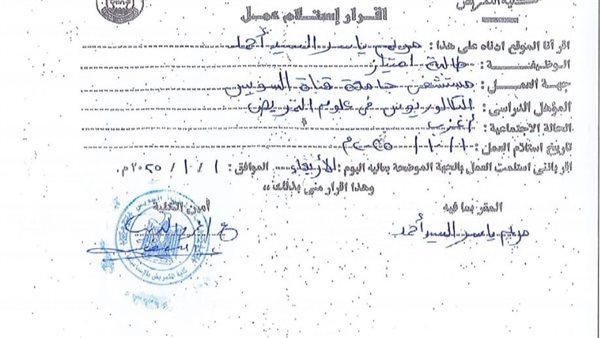 كلية التمريض
اقرار إستلام عمل
اقر أنا الموقع ادناه على هذا : مريم ياسر السيد أحمد
الوظيفة : طالبة امتياز
جهة العمل : مستشفى جامعة قناة السويس
المؤهل الدراسى : البكالوريوس فى علوم التمريض
الحالة الاجتماعية : أعزب
تاريخ استلام العمل : ١ / ١٠ / ٢٠٢٥م
اقر باننى استلمت العمل بالجهة الموضحة بعاليه اليوم : الأربعاء الموافق : ١ / ١٠ / ٢٠٢٥م.
وهذا اقرار منى بذلك ،،
المقر بما فيه
أمين الكلية
مريم ياسر السيد أحمد